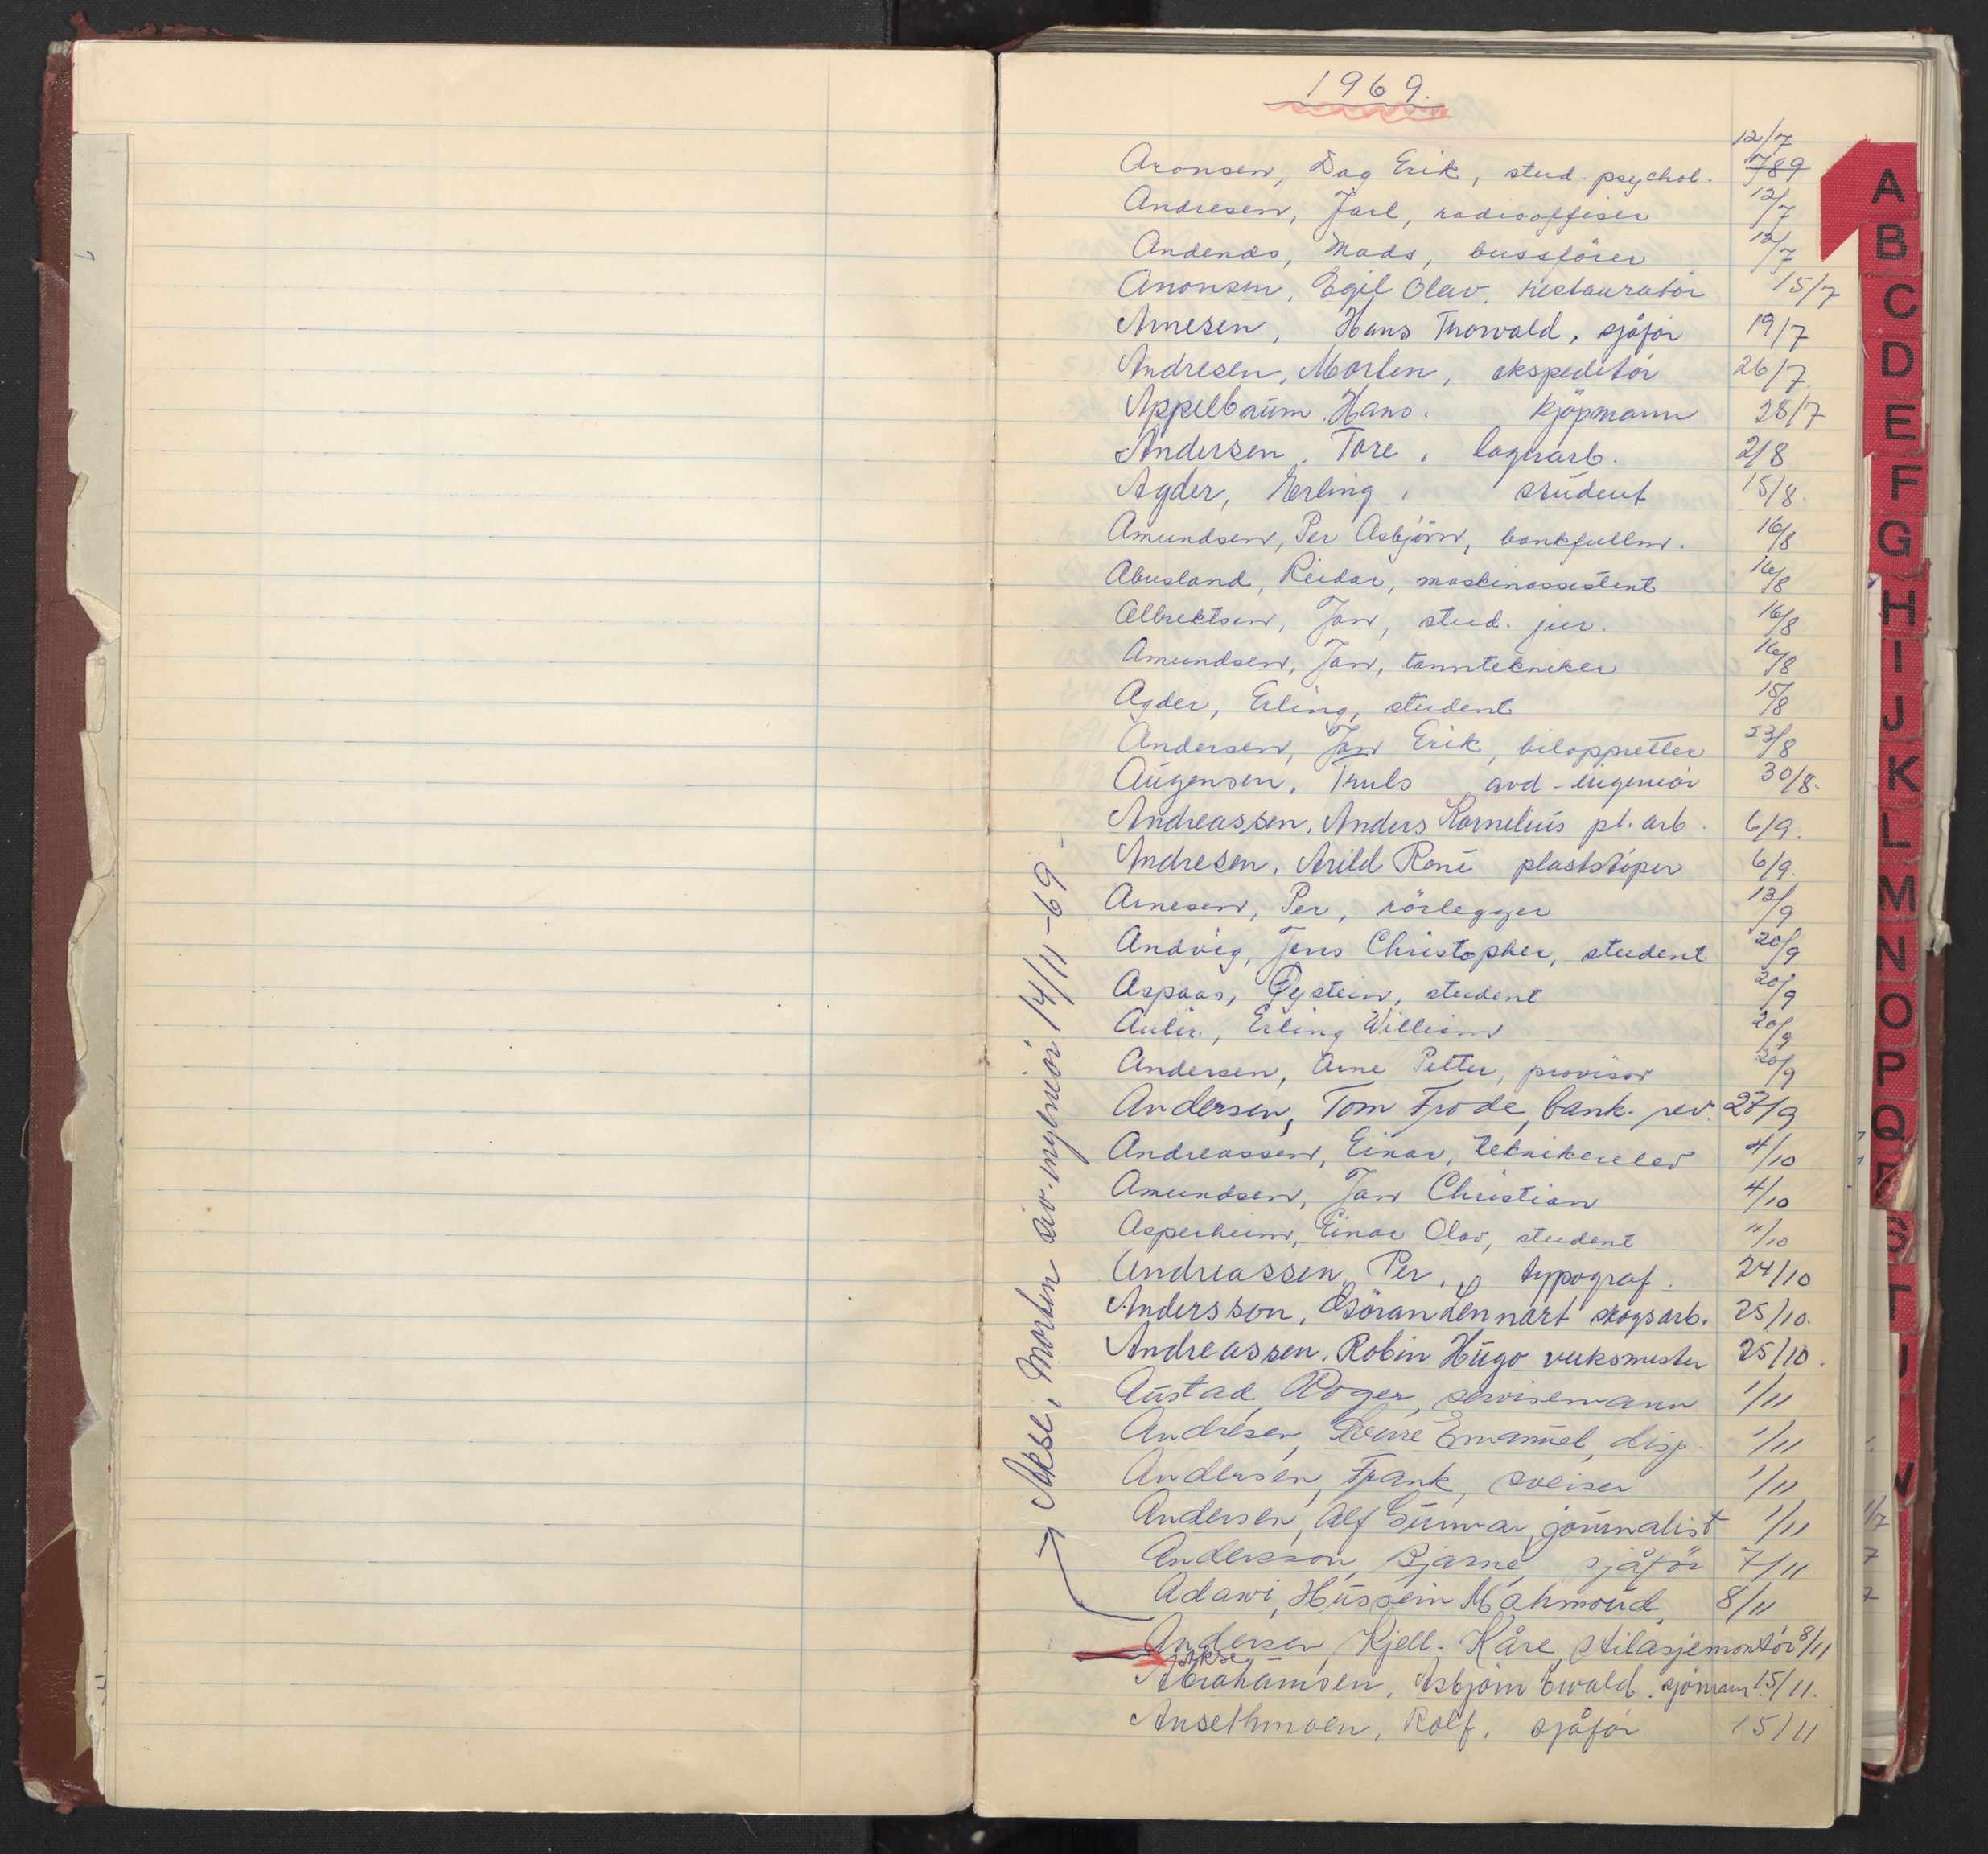 1969.
12/7
Aronsen, Dag Erik, stud. psychol. 789
Andresen, Jarl, radiooffiser 12/7
Andenæs, Mads, bussförer 12/7
Anonsen, Egil Olav, restauratör 15/7
Arnesen, Hans Thorvald, sjåför 19/7
Andresen, Morten, ekspeditör 26/7
Appelbaum, Hans. kjöpmann 28/7
Andersen, Tore, lagerarb. 2/8
Agder, Erling, student 15/8.
Amundsen, Per Asbjörn, bankfullm. 16/8
Abusland, Reidar, maskinassistent 16/8
Albrektsen, Jan, stud. jur. 16/8
Amundsen, Jan, tanntekniker 16/8
Agder, Erling, student 15/8
Andersen, Jan Erik, biloppretter 23/8
Augensen, Truls avd-ingeniör 30/8.
Andreassen, Anders Kornelius pl. arb. 6/9.
Andresen, Arild René plaststöper 6/9.
Arnesen, Per, rörlegger 13/9
Andvig, Jens Christopher, student 20/9
Aspaas, Øystein, student 20/9
Aulie, Erling William 20/9
Andersen, Arne Petter, provisor 20/9
Andersen, Tom Frode, bank. rev. 27/9
Andreassen, Einar, teknikerelev 4/10
Amundsen, Jan Christian 4/10
Asperheim, Einar Olav, student 11/10
Andreassen, Per, typograf. 24/10
Andersson, Göran Lennart skogsarb. 25/10.
Andreassen, Robin Hugo verksmester 25/10.
Austad, Roger, servisemann 1/11
Andresen, Sverre Emanuel, disp. 1/11
Andersen, Frank, sveiser 1/11
Andersen, Alf Gunnar, journalist 1/11
Andersson, Bjarne, sjåför 7/11
Adawi, Hussein Mahmoud, 8/11
Andersen, Kjell-Kåre, stilasjemontör 8/11
Akse
Abrahamsen, Asbjörn Ewald. sjömann. 15/11.
Ansethmoen, Rolf. sjåför 15/11
Akse, Morten siv.ingeniör 14/11-69-
A
B
C
D
E
F
G
H
I
J
K
L
M
N
O
P
Q
S
T